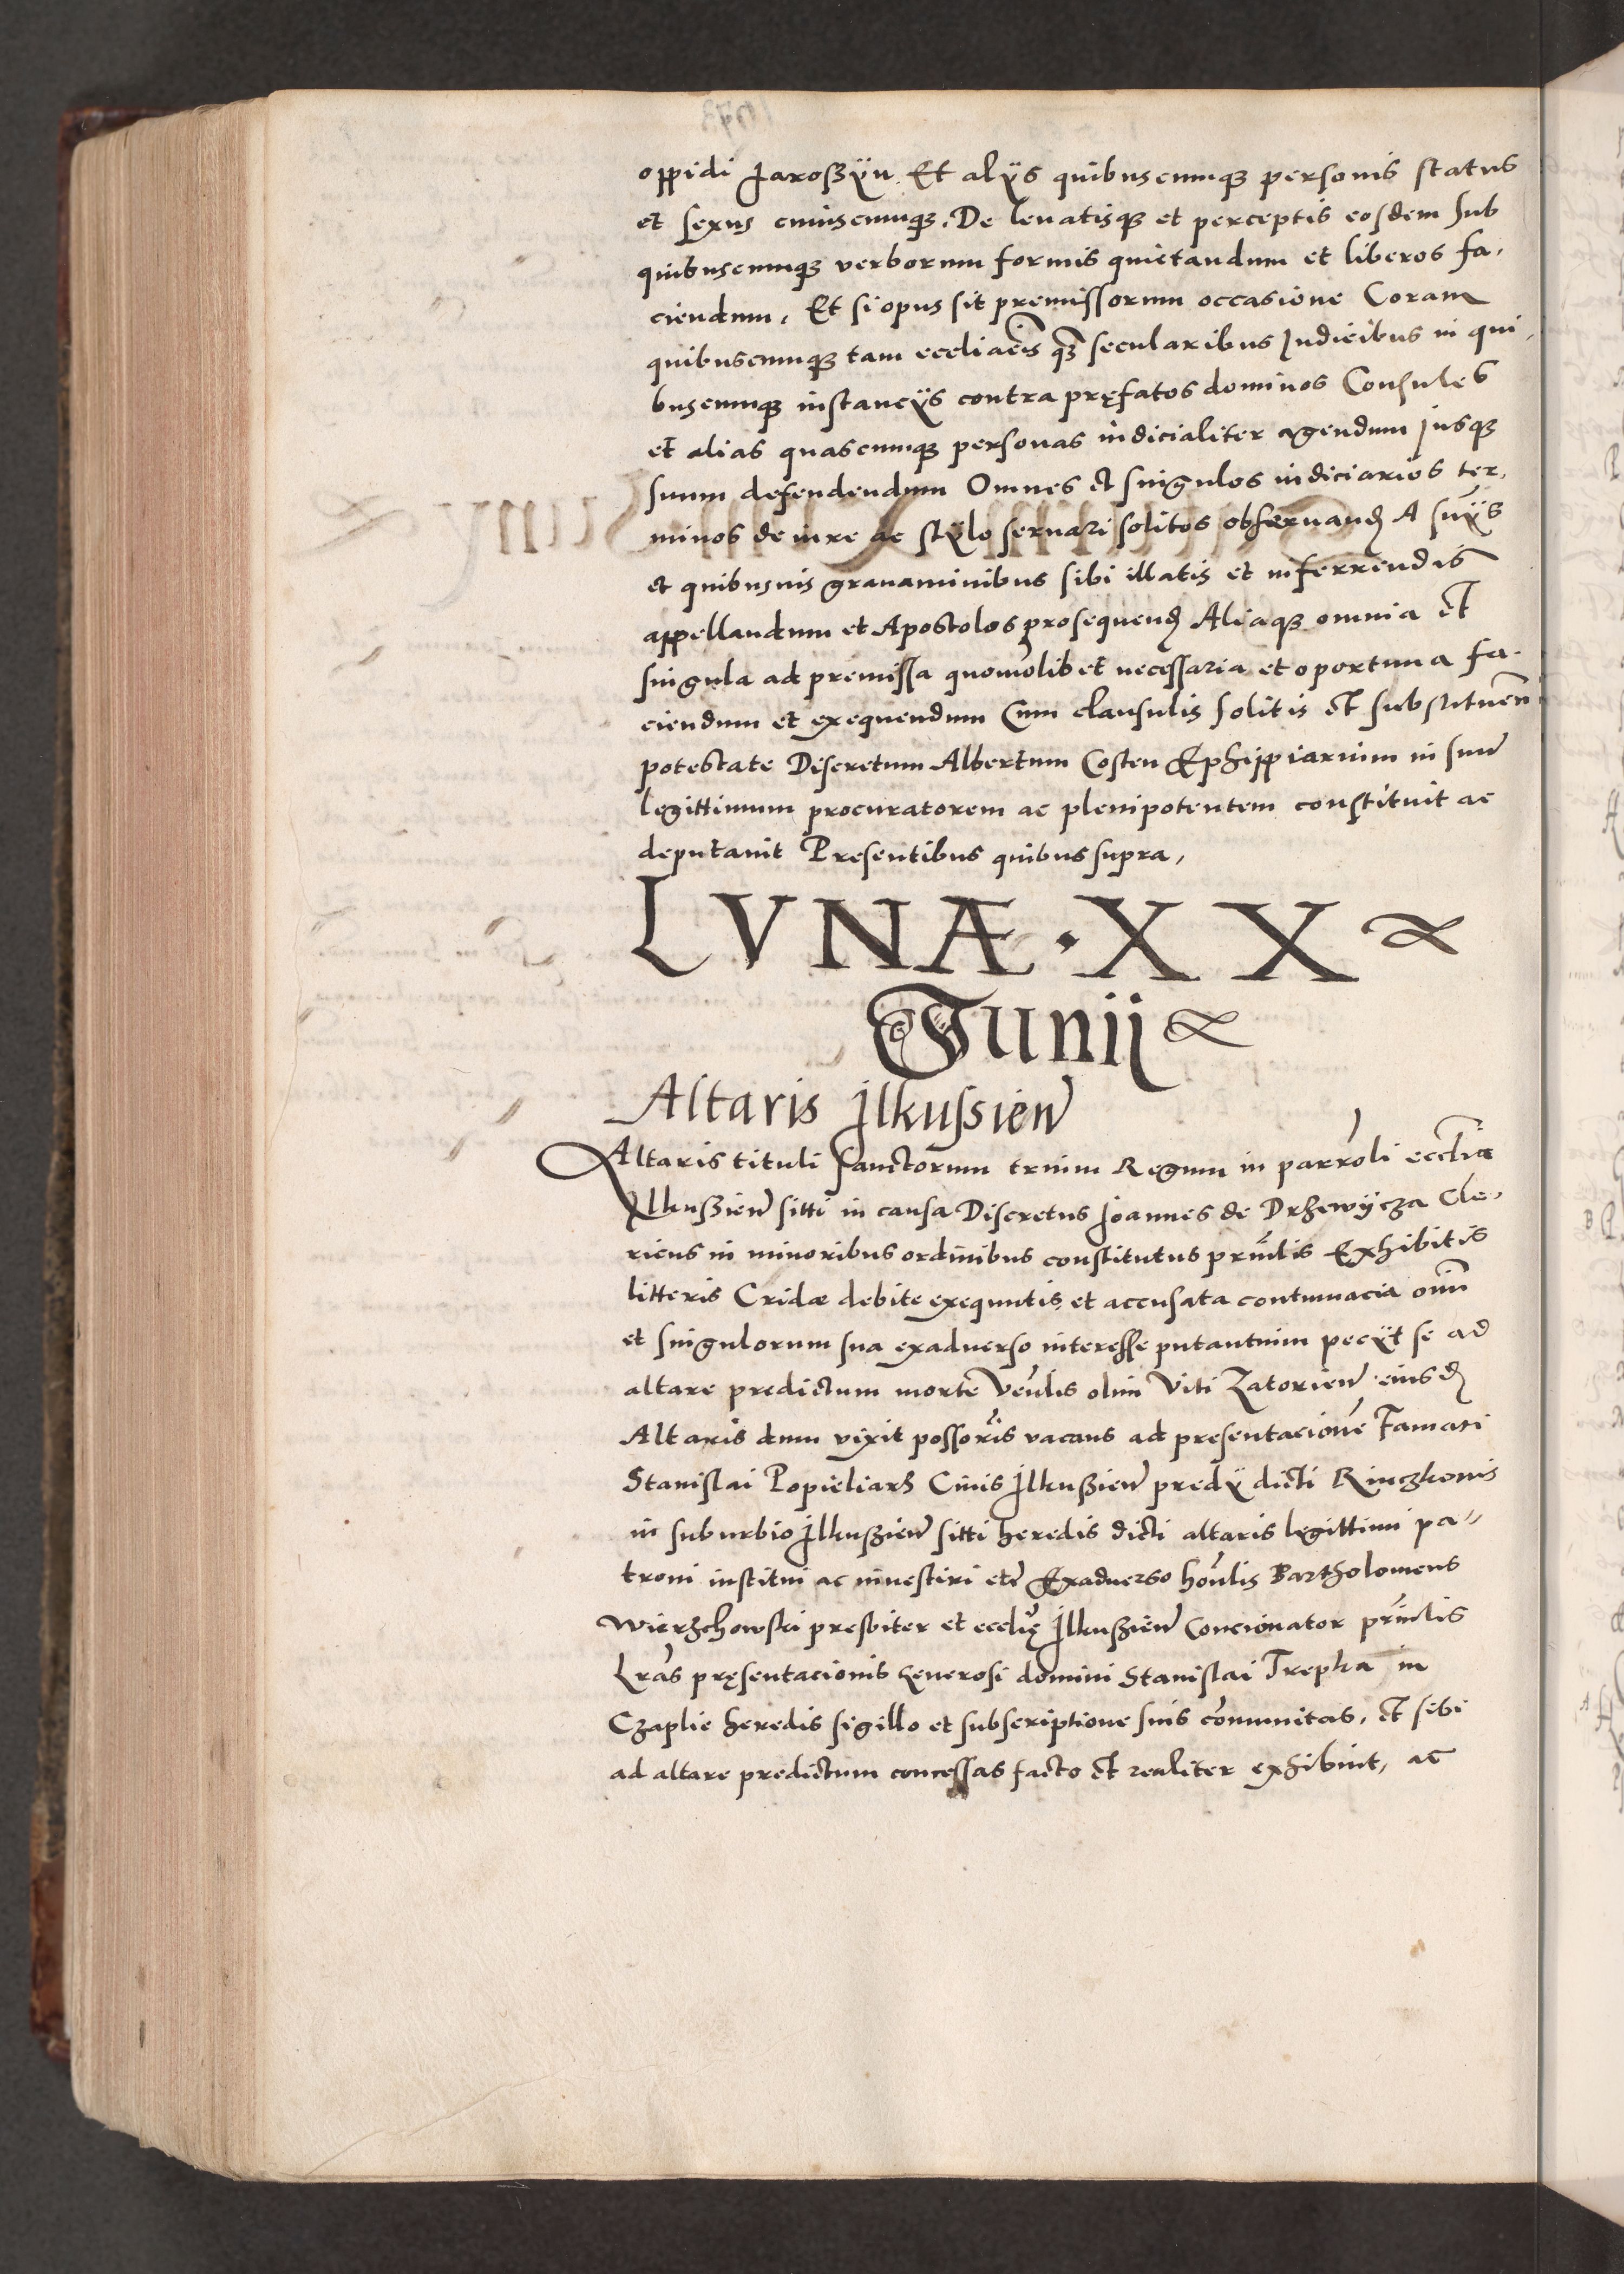 oppidi Jaroßÿn. Et alÿs quibuscumq₃ personis status
et sexus cuiuscumq₃. De levatisq₃ et perceptis eosdem sub
quibuscumq₃ verborum formis quietandum et liberos fa-
ciendum, Et si opus sit premissorum occasione Coram
quibuscumq₃ tam eccliacis q₃ secularibus Judicibus in qui-
buscumq₃ instancÿs contra pręfatos dominos Consules
et alias quascumq₃ personas iudicialiter agendum jusq₃
suum defendendum Omnes et singulos iudiciarios ter-
minos de iure ac stÿlo servari solitos observand A suÿs
et quibusuis gravaminibus sibi illatis et inferrendis
appellandum et Apostolos prosequend Aliaq₃ omnia et
singula ad premissa quomolibet necessaria et oportuna fa-
ciendum et exequendum Cum clausulis solitis et substituen
potestate Discretum Albertum Costen Ephippiarium in suu
legittimum procuratorem ac plenipotentem constituit ac
deputauit Presentibus quibus supra,
LVNÆ · XX
Junij
Altaris Jlkussien
Altaris tituli sanctorum trium Regum in parroli ecclia
Ilkußien sitti in causa Discretus Joannes de Drzewÿcza Cle-
ricus in minoribus ordinibus constitutus prnlis Exhibitis
litteris Cridæ debite exequutis et accusata contumacia oim
et singulorum sua exaduerso interesse putantium pecÿt se ad
altare predictum morte venlis olim Viti Zatorien eiusd
Altaris dum vixit possoris vacans ad presentacione Famati
Stanislai Popieliarz Ciuis Jlkußien predÿ dicti Rinczkonis
in suburbio Jlkußien sitti heredis dicti altaris legittimi pa-
troni institui ac inuestiri etc Exaduerso honlis Bartholomeus
Wierzchowski presbiter et ecclię Jlkußien Concionator prnlis
Lras pręsentacionis Generosi domini Stanislai Trepka in
Czaplie heredis sigillo et subscriptione suis comunitas, et sibi
ad altare predictum concessas facto et realiter exhibuit, ac